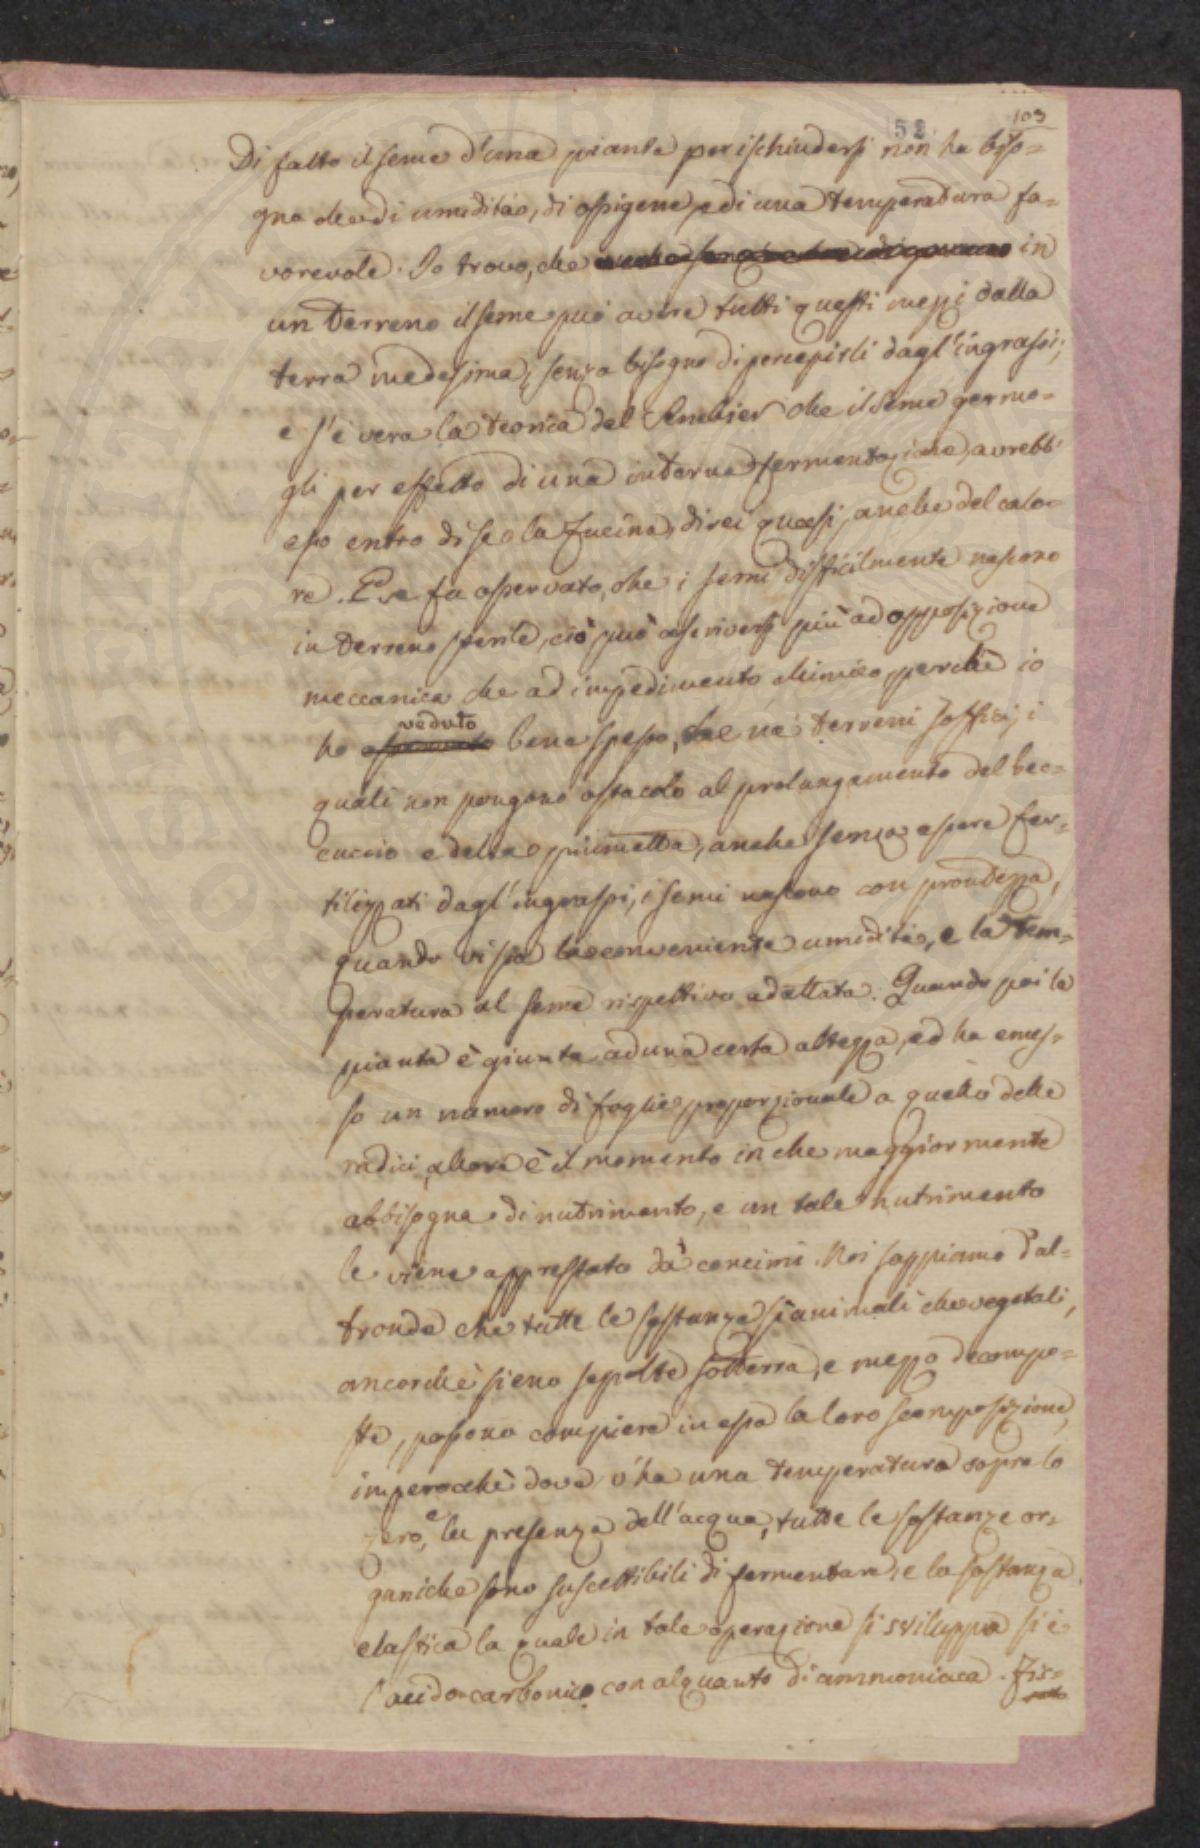 103
52
Di fatto il seme d'una pianta per ischiudersi non ha biso=
gno che di umidità, di ossigene e di una temperatura fa=
vorevole. Io trovo, che in
un terreno il seme può avere tutti questi mezzi dalla
terra medesima, senza bisogno di percepirli dagl'ingrassi;
e s'è vera la teoria del Senebier che il seme germo=
gli per effetto di una interna fermentazione, avrebb'
esso entro di se la fucina, direi quasi, anche del calo=
re. E se fu osservato, che i semi difficilmente nascono
in terreno sterile, ciò può ascriversi più ad opposizione
meccanica che ad impedimento chimico, perchè io
veduto
ho osservato bene spesso, che ne' terreni soffici, i
quali non pongono ostacolo al prolungamento del bec=
cuccio e della piumetta, anche senza essere fer=
tilizzati dagl'ingrassi, i semi nascono con prontezza,
quando vi sia la conveniente umidità, e la tem=
peratura al seme rispettivo adattata. Quando poi la
pianta è giunta ad una certa altezza, ed ha emes=
so un numero di foglie proporzionale a quello delle
radici, allora è il momento in che maggiormente
abbisogna di nutrimento, e un tale nutrimento
le viene apprestato da' concimi. Noi sappiamo d'al=
tronde che tutte le sostanze sì animali che vegetali,
ancorchè sieno sepolte sotterra, e mezzo decompo=
ste, possono compiere in essa la loro scomposizione,
imperocchè dove v'ha una temperatura sopra lo
zero, e la presenza dell'acqua, tutte le sostanze or=
ganiche sono suscettibili di fermentare, e la sostanza
elastica la quale in tale operazione si sviluppa si è
l'acido carbonico con alquanto di ammoniaca. Fis=